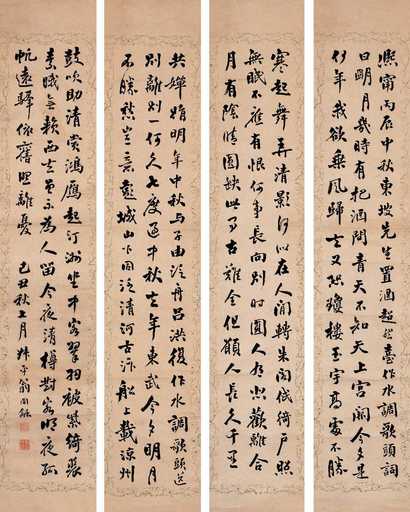 熙甯丙辰中秋東坡先生置酒超然臺作水調歌頭詞
曰明月幾時有把酒問青天不知天上宮闕今夕是
何年我欲乘風歸去又恐瓊樓玉宇高處不勝
寒起舞弄清影何似在人間轉朱閣低綺戶照
無眠不應有恨何事長向別時圓人有悲歡離合
月有陰晴圓缺此事古難全但願人長久千里
共嬋娟明年中秋與子由泛舟呂洪復作水調歌頭送
別離別一何久七度過中秋去年東武今夕明月
不勝愁豈意彭城山下同泛清河古汴船上載涼州
鼓吹助清賞鴻雁起汀洲坐中客翠羽帔紫綺裘
素娥無賴西去曾不為人留今夜清樽對客明夜孤
帆遠驛依舊照離憂 己丑秋七月 叔平翁同龢